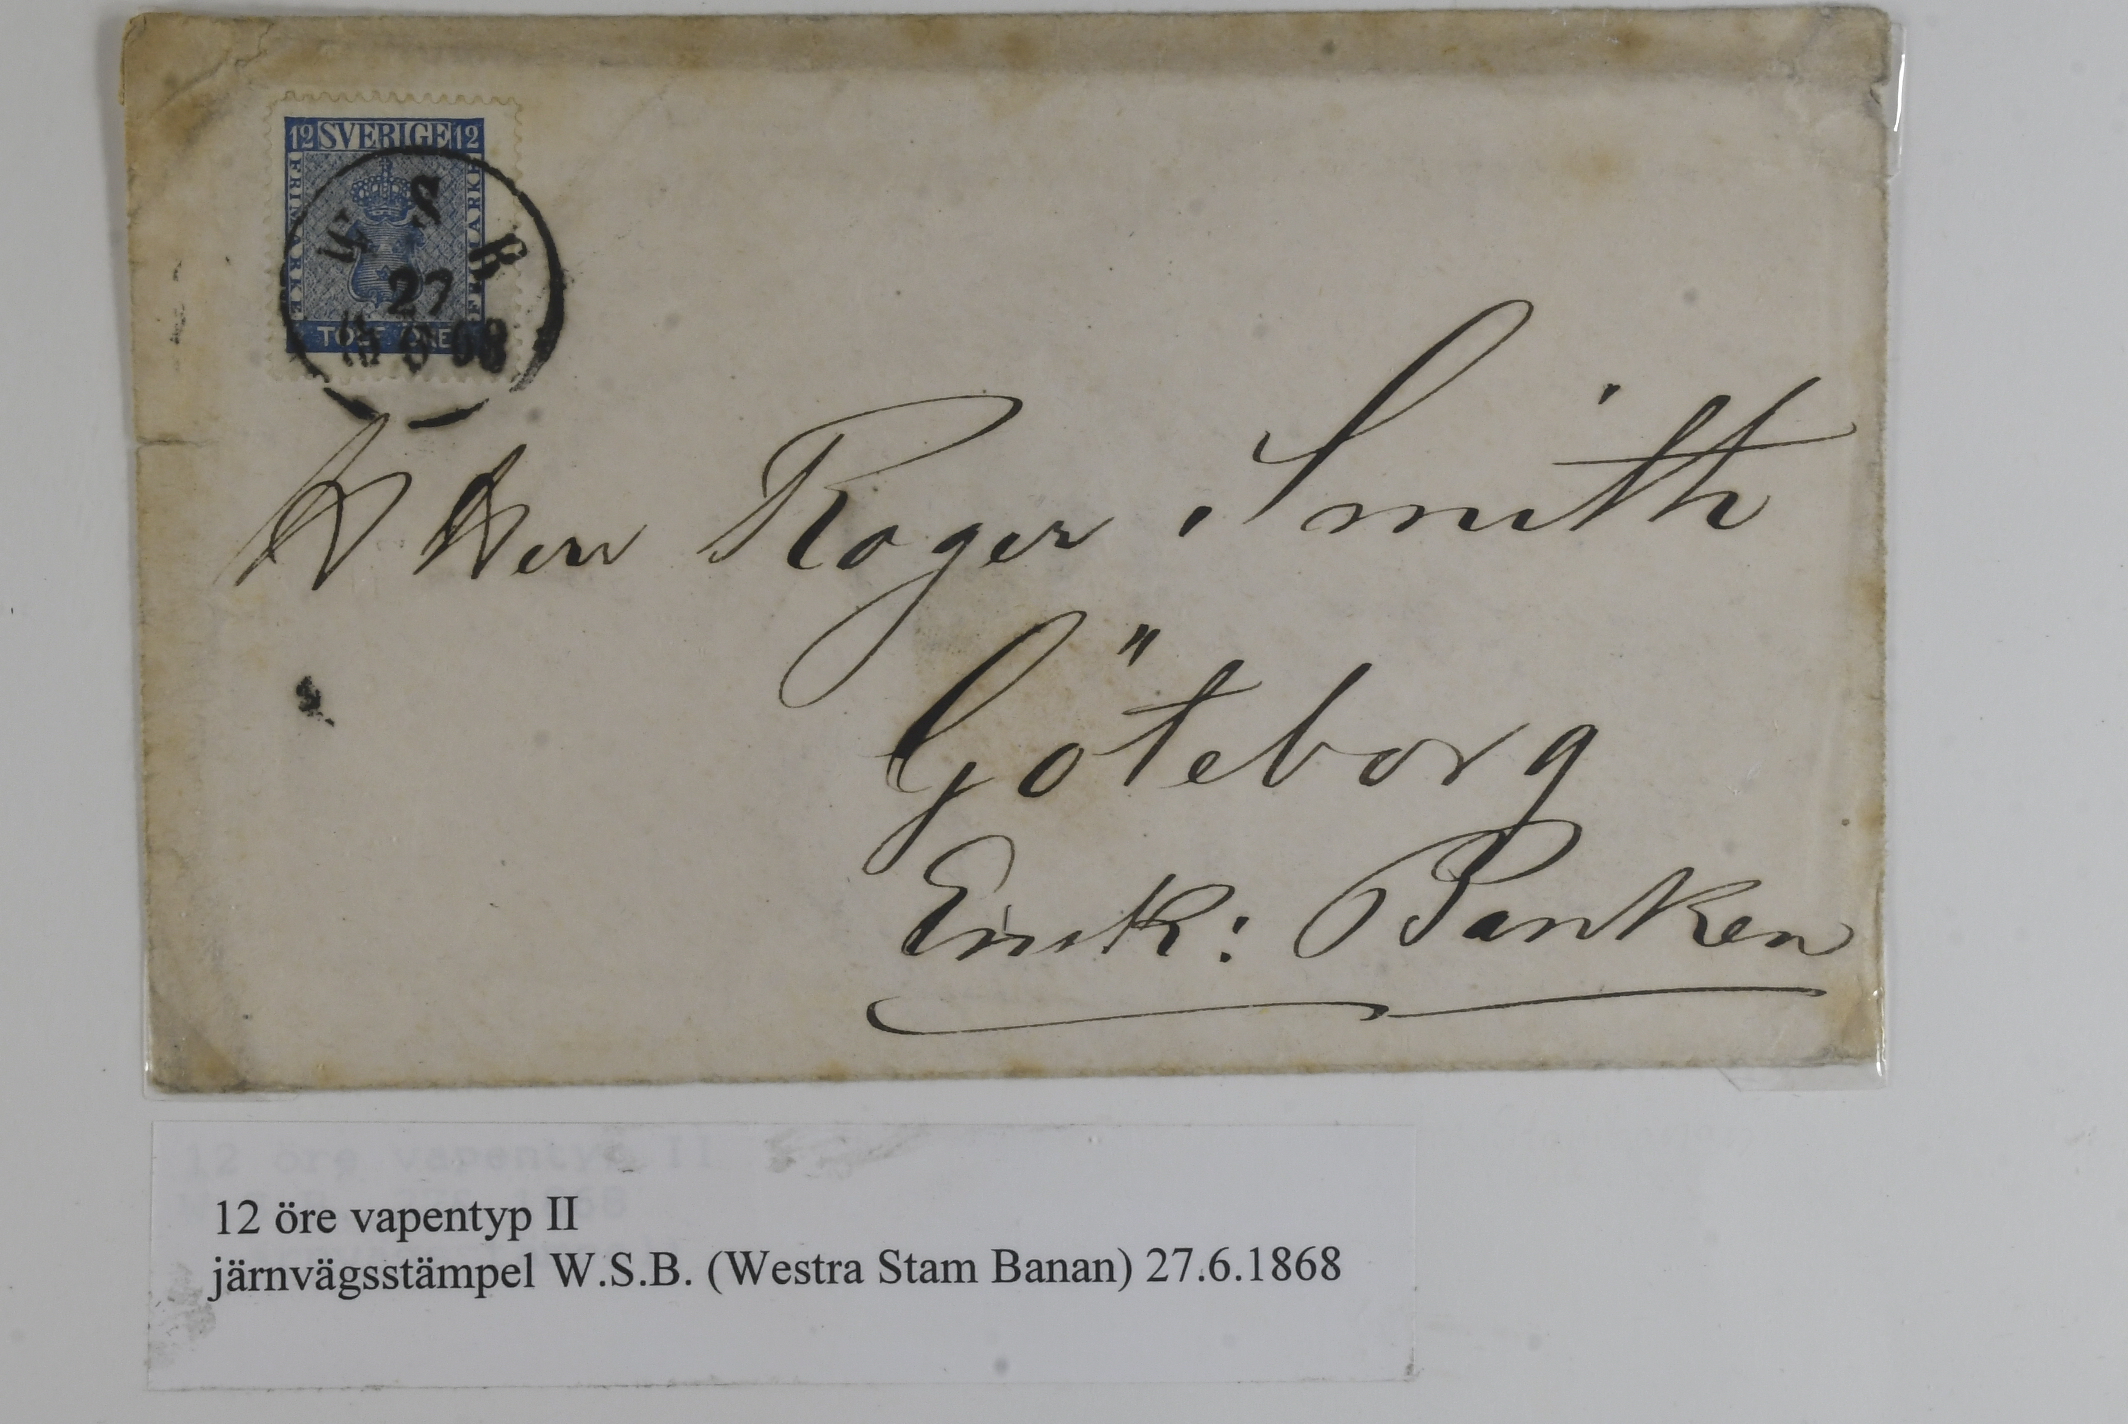 12 SVERIGE 12
FRIMÄRKE
FRIMÄRKE
TOLF ÖRE
W S B
27
6 68
H Herr Roger Smith
Göteborg
Ensk: Banken
12 öre vapentyp II
järnvägsstämpel W.S.B. (Westra Stam Banan) 27.6.1868